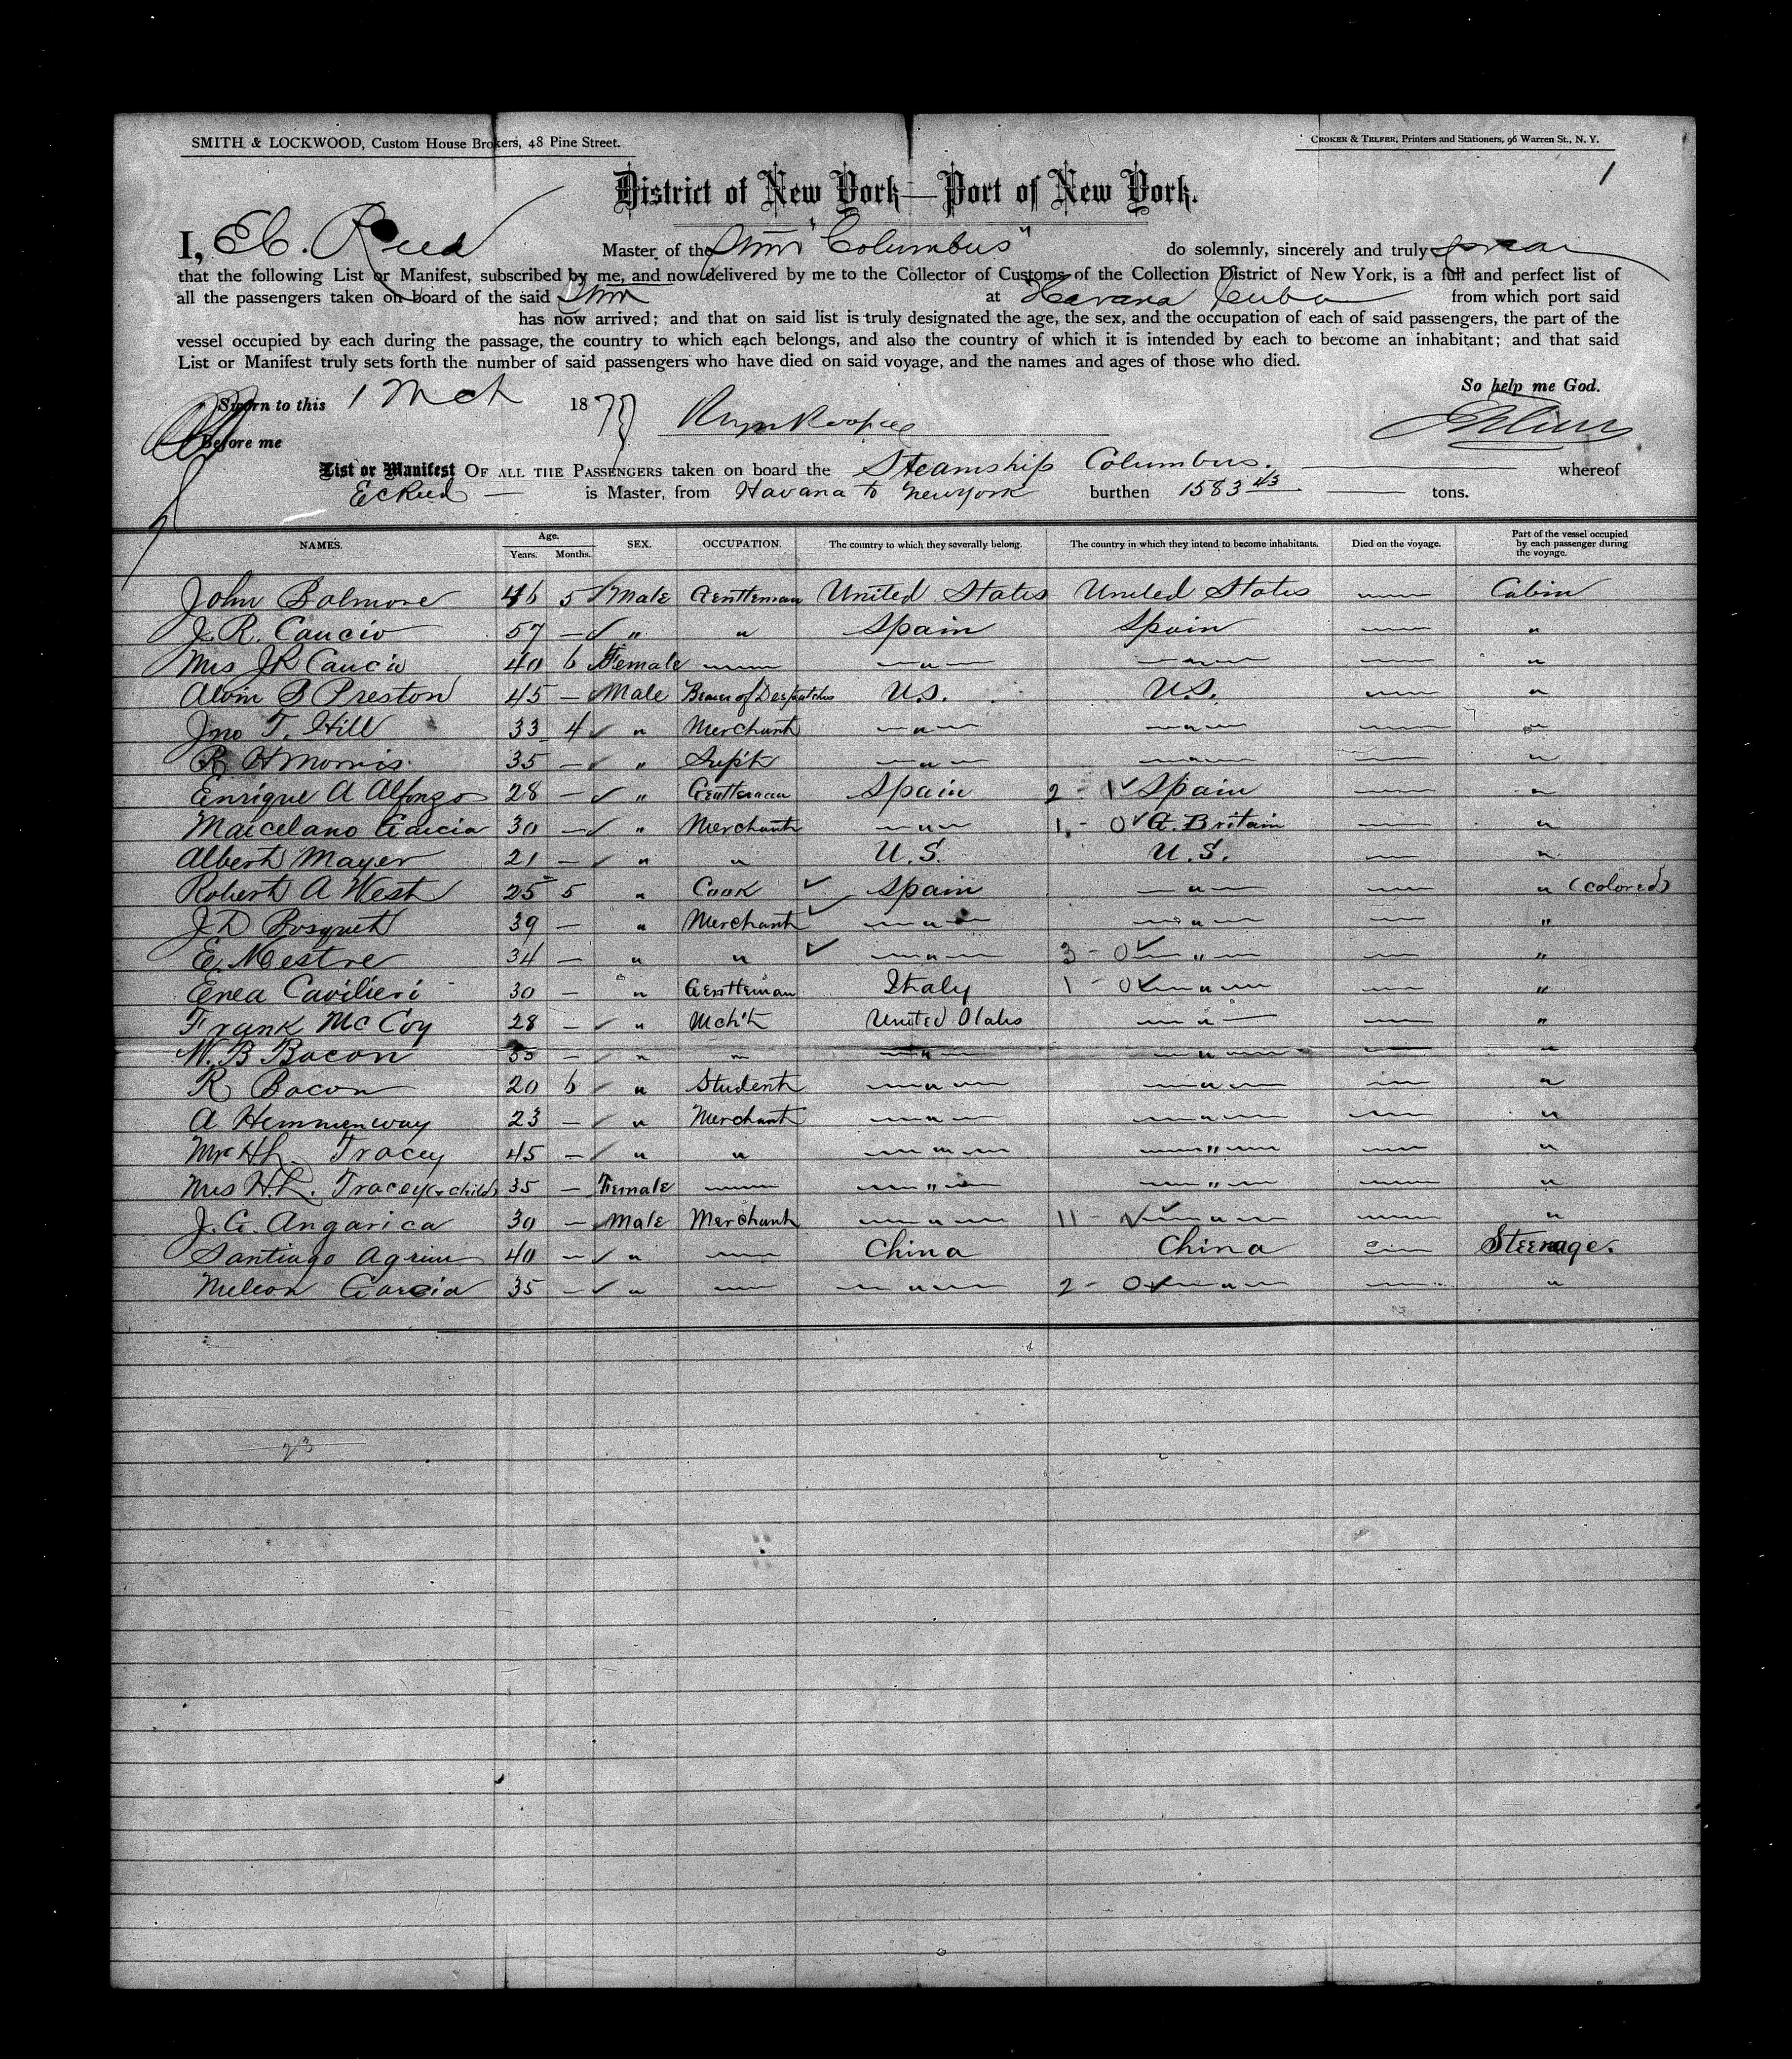 SMITH & LOCKWOOD, Custom House Brokers, 48 Pine Street. CROKER & TELFER, Printers and Stationers, 96 Warren St., N. Y.
1
District of New York—Port of New York.
I, E C. Reed Master of the Stmr "Columbus" do solemnly, sincerely and truly swear
that the following List or Manifest, subscribed by me, and now delivered by me to the Collector of Customs of the Collection District of New York, is a full and perfect list of
all the passengers taken on board of the said Stmr at Havana Cuba from which port said
has now arrived; and that on said list is truly designated the age, the sex, and the occupation of each of said passengers, the part of the
vessel occupied by each during the passage, the country to which each belongs, and also the country of which it is intended by each to become an inhabitant; and that said
List or Manifest truly sets forth the number of said passengers who have died on said voyage, and the names and ages of those who died.
So help me God.
Sworn to this 1 Mch 1879
Before me
List or Manifest OF ALL THE PASSENGERS taken on board the Steamship Columbus. whereof
E C Reed — is Master, from Havana to New York burthen 1583 43 tons.
NAMES. Age. Years. Months. SEX. OCCUPATION. The country to which they severally belong. The country in which they intend to become inhabitants. Died on the voyage. Part of the vessel occupied by each passenger during the voyage.
John Balmore 46 5 Male Gentleman United States United States — Cabin
J. R. Caucio 57 — " " Spain Spain — "
Mrs J R Caucio 40 6 Female — " " — "
Alvin S Preston 45 — Male Bearer of Despatches U.S. U.S. — "
Jno T. Hill 33 4 " Merchant " " — "
R H Morris 35 — " Supt " " — "
Enrique A Alfonzo 28 — " Gentleman Spain 2 - 1 ✓ Spain — "
Marcelano Garcia 30 — " Merchant " 1 - 0 ✓ G. Britain — "
Albert Mayer 21 — " " U.S. U.S. — "
Robert A West 25 5 " Cook ✓ Spain " — " (colored)
J D Bosquet 39 — " Merchant ✓ " " — "
E. Mestre 34 — " " ✓ " 3 - 0 ✓ " — "
Enea Cavilieri 30 — " Gentleman Italy 1 - 0 ✓ " — "
Frank McCoy 28 — " Mch't United States " — "
W. B Bacon — " " " " — "
R Bacon 20 6 " Student " " — "
A Hemmenway 23 — " Merchant " " — "
Mr H L. Tracey 45 — " " " " — "
Mrs H. L. Tracey (& child) 35 — Female — " " — "
J. G. Angarica 30 — Male Merchant " 11 - ✓ " — "
Santiago 40 — " — China China — Steerage.
Garcia 35 — " — " 2 - 0 ✓ " — "
23